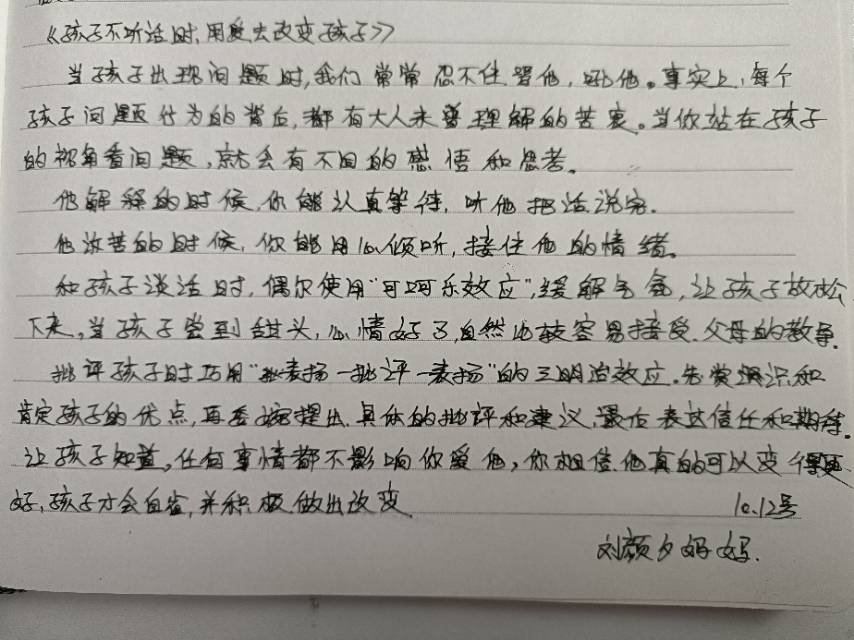 《孩子不听话时,用爱去改变孩子》
当孩子出现问题时,我们常常忍不住骂他,吼他。事实上,每个
孩子问题行为的背后,都有大人未曾理解的苦衷。当你站在孩子
的视角看问题,就会有不同的感悟和思考。
他解释的时候,你能认真等待,听他把话说完.
他诉苦的时候,你能用心倾听,接住他的情绪。
和孩子谈话时,偶尔使用"可口可乐效应",缓解气氛,让孩子放松
下来,当孩子尝到甜头,心情好了,自然比较容易接受.父母的教导.
批评孩子时巧用"表扬一批评一表扬"的三明治效应.先赏识和
肯定孩子的优点,再委婉提出.具体的批评和建议,最后表达信任和期待.
让孩子知道,任何事情都不影响你爱他,你相信他真的可以变得更
好,孩子才会自省,并积极做出改变
10.12号
刘颜夕妈妈.